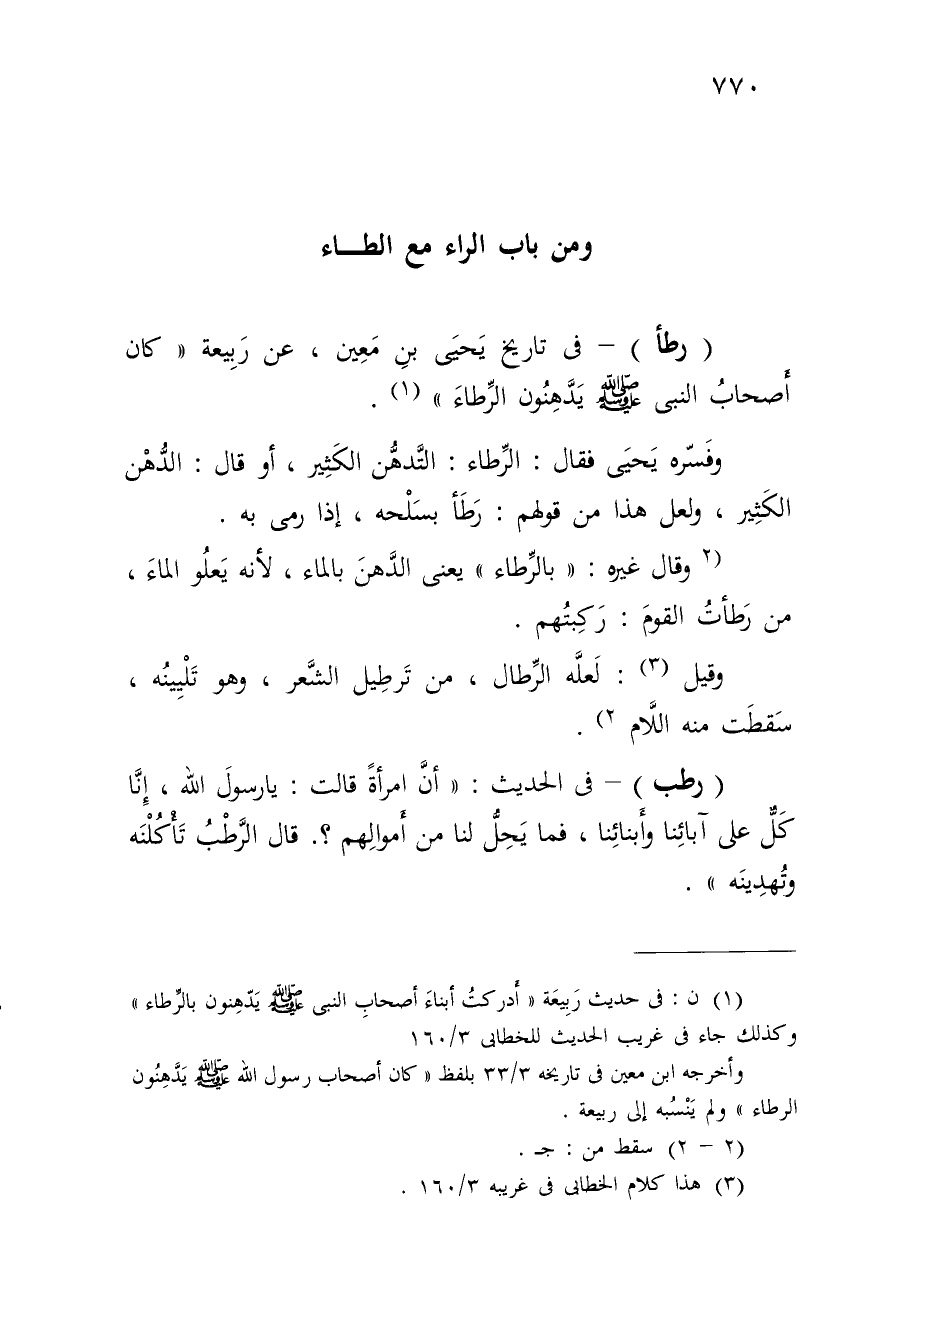 ٧٧٠
ومن باب الراء مع الطـــاء
( رطأ ) – فى تاريخ يَحيَى بنِ مَعِين ، عن رَبِيعة « كان
أَصحابُ النبى ﷺ يَدَّهِنُون الرِّطاءَ » (١) .
وفَسّره يَحيَى فقال : الرِّطاء : التَّدهُّن الكَثِير ، أو قال : الدُّهْن
الكَثِير ، ولعل هذا من قولهم : رَطَأ بسَلْحه ، إذا رمى به .
(٢ وقال غيره : « بالرِّطاء » يعنى الدَّهنَ بالماء ، لأنه يَعلُو الماءَ ،
من رَطأتُ القومَ : رَكِبتُهم .
وقيل (٣) : لَعلَّه الرِّطال ، من تَرطِيل الشَّعر ، وهو تَلْيِينُه ،
سَقطَت منه اللَّام ٢) .
( رطب ) – فى الحديث : « أنَّ امرأةً قالت : يارسولَ الله ، إِنَّا
كَلٌّ على آبائِنا وأَبنائِنا ، فما يَحِلُّ لنا من أَموالِهم ؟. قال الرَّطْبُ تَأْكُلْنَه
وتُهدِينَه » .
(١) ن : فى حديث رَبِيعَة « أَدركتُ أبناءَ أصحابِ النبى ﷺ يَدّهِنون بالرِّطاء »
وكذلك جاء فى غريب الحديث للخطابى ١٦٠/٣
وأخرجه ابن معين فى تاريخه ٣٣/٣ بلفظ « كان أصحاب رسول الله ﷺ يَدَّهنُون
الرطاء » ولم يَنْسُبه إلى ربيعة .
(٢ – ٢) سقط من : جـ .
(٣) هذا كلام الخطابى فى غريبه ١٦٠/٣ .